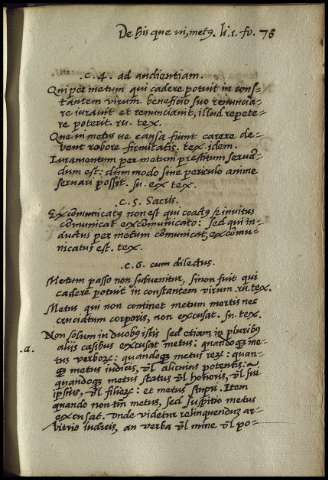 De his que vi, metq3 li. 1. fo. 78
.c. 4. ad audientiam.
Qui per metum qui cadere potuit in cons-
tantem virum. beneficio suo renuncia-
re iuravit et renunciavit, illud repete-
re poterit. ru. tex.
Que vi metus ve causa fiunt carere de-
bent robore firmitatis. tex. idem.
Iuramentum per metum prestitum servan-
dum est: dummodo sine periculo anime
servari possit. sn. ex tex.
.c. 5. Sacris.
Excomunicatq non est qui coactq & invitus
comunicat excomunicato: sed qui in-
ductus per metum comunicat, excomu-
nicatus est. tex.
.c. 6. cum dilectus.
Metum passo non subvenitur, si non fuit qui
cadere potuit in constantem virum. ru. tex.
Metus qui non continet metum mortis nec
cruciatum corporis, non excusat. sn. tex.
Non solum in duobq istis sed etiam in pluribq
.a. aliis casibus excusat metus: quandoq3 me-
tus verboru3: quandoq3 metus rei: quan-
q3 metus iudicis, vl alicuius potentis:
quandoq3 metus status vl honoris, vl sui
ipsius, vl filioru3: et metus stupri. Item
quando non tm metus, sed suspitio metus
excusat. unde videtur relinquendum ar-
bitrio iudicis, an verba vl mine vl po-